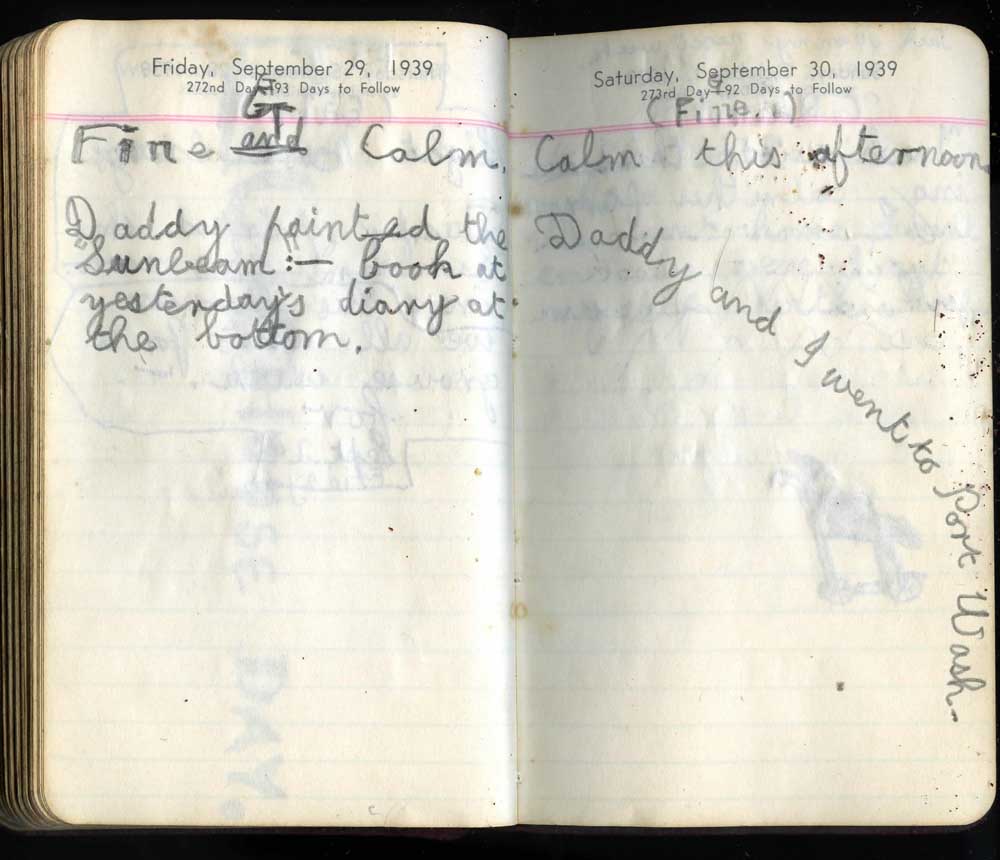 Friday, September 29, 1939
272nd Day 93 Days to Follow
Fine and Calm.
Daddy painted the
"Sunbeam:— book at
yesterday's diary at
the bottom.
Saturday, September 30, 1939
273rd Day 92 Days to Follow
(Fine.)
Calm this afternoon
Daddy and I went to Port Wash.